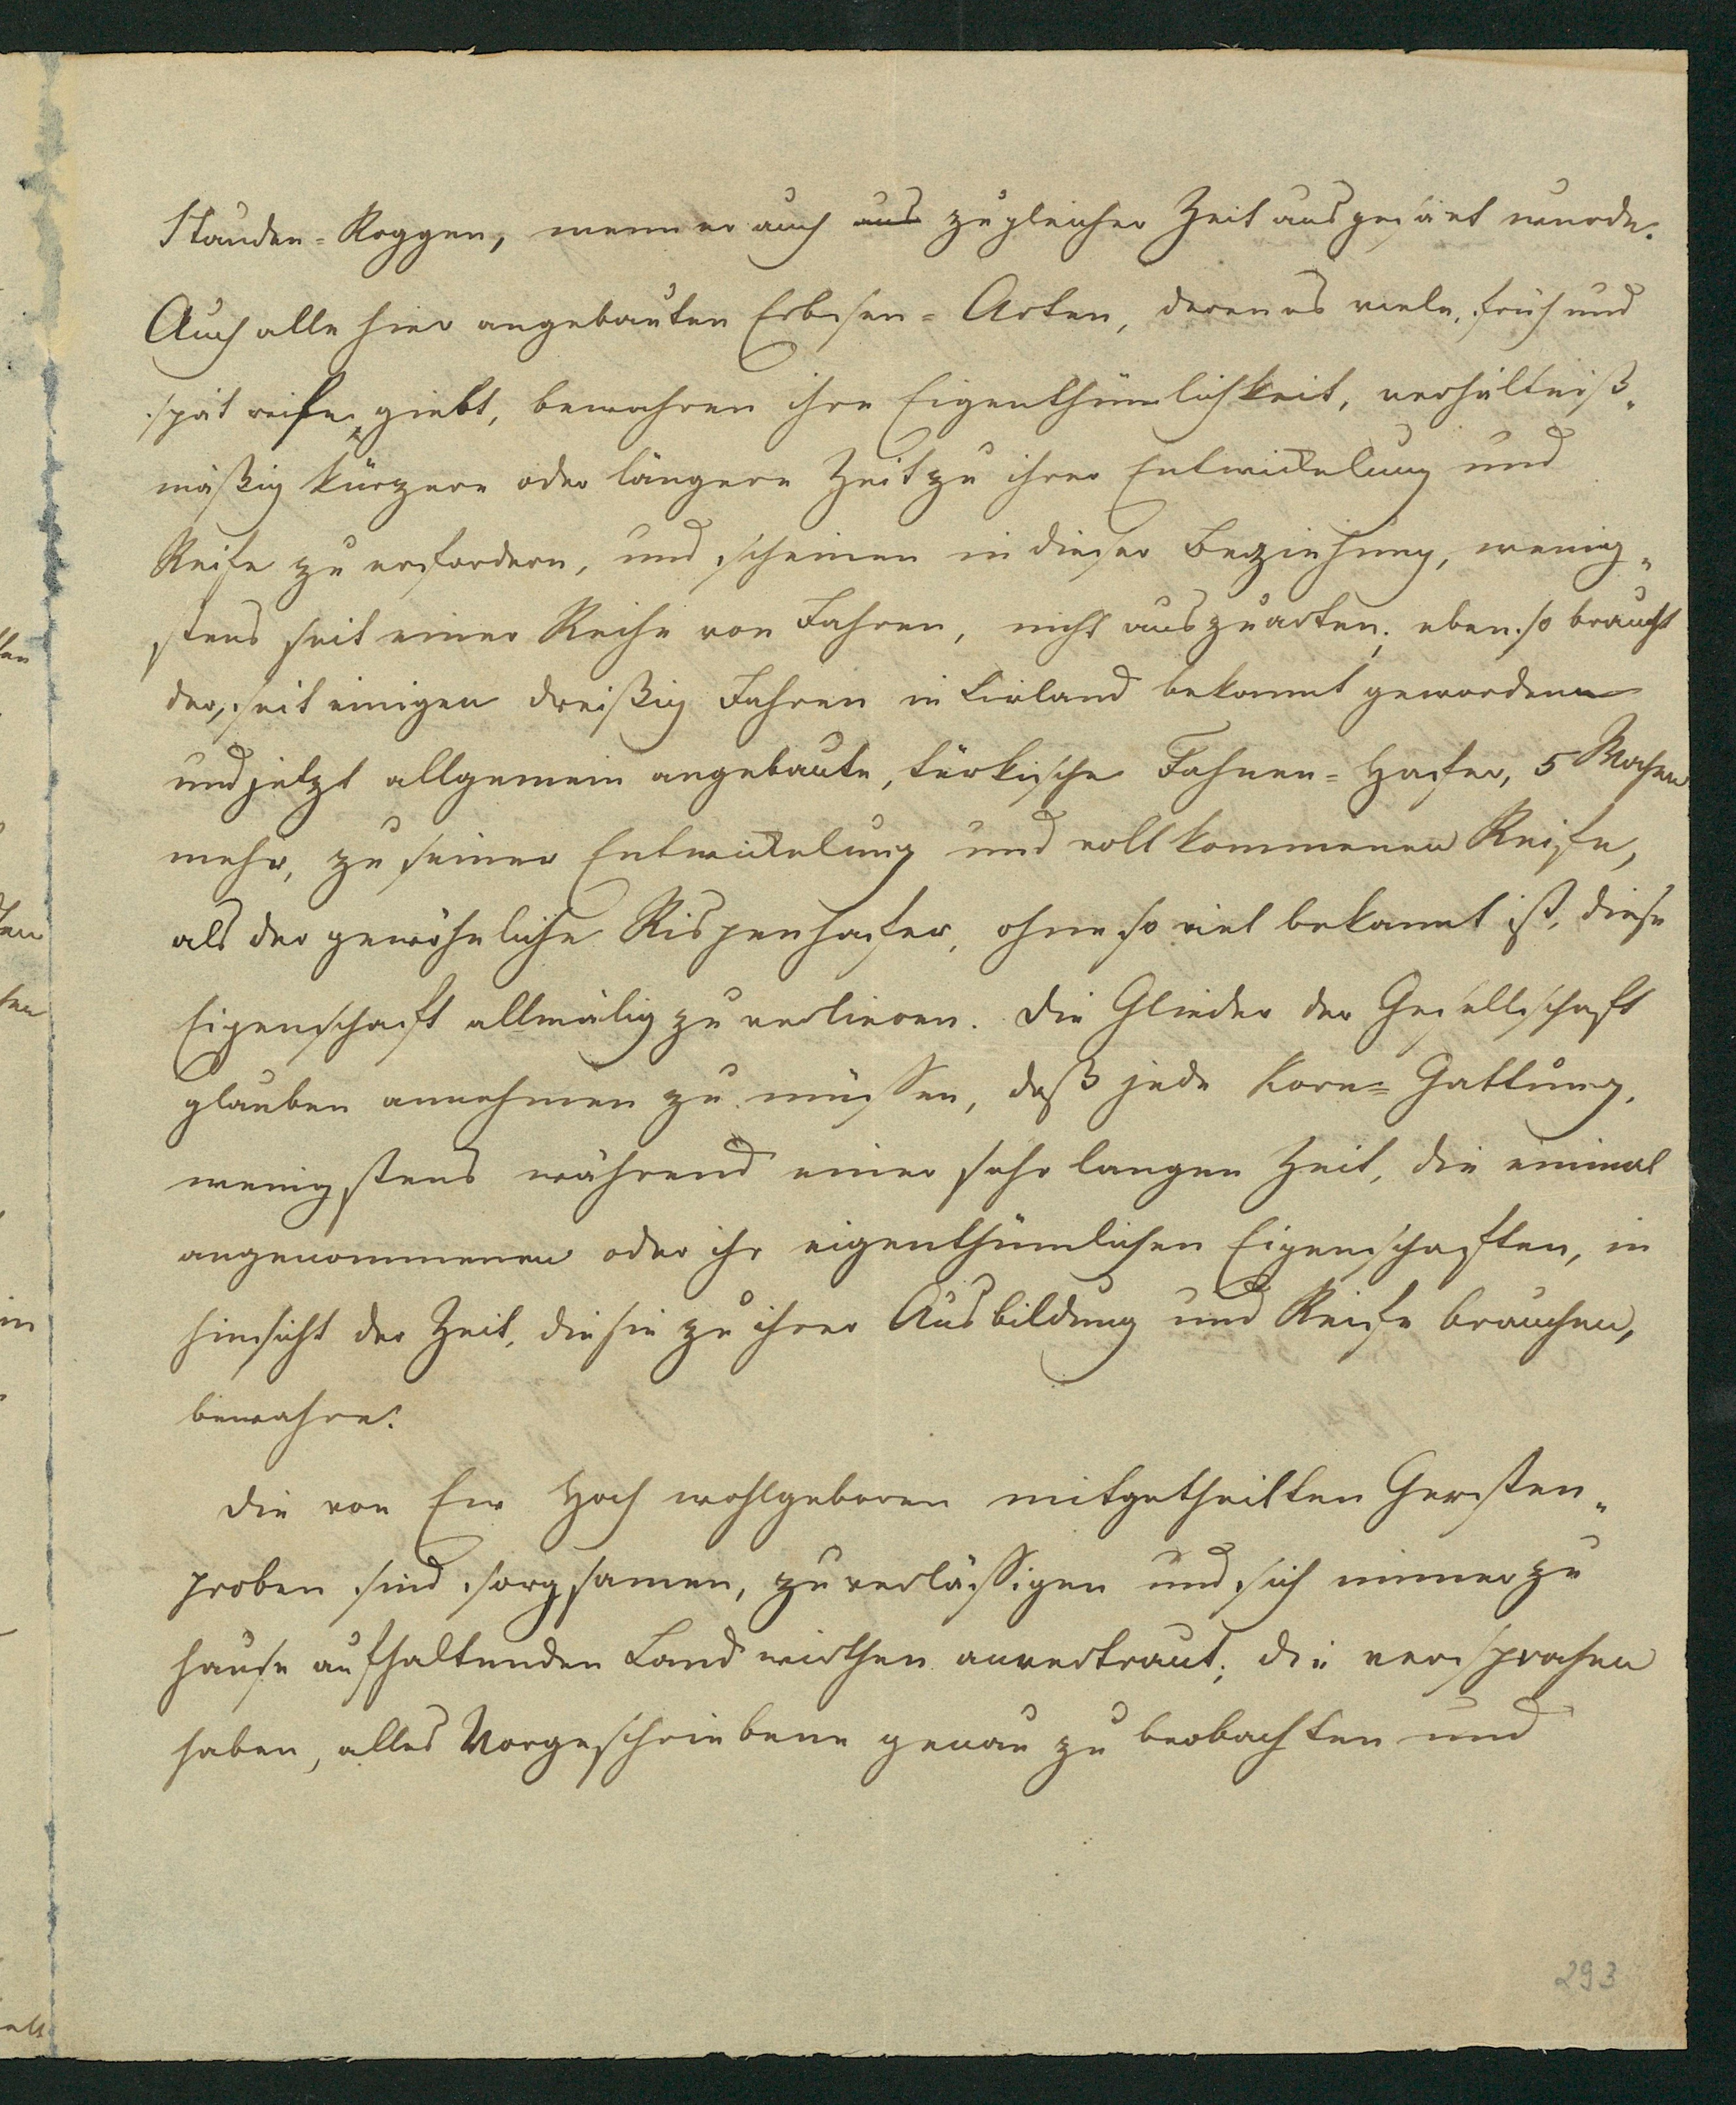 Stauden-Roggen, wenn er auch aus zu gleicher Zeit ausgesäet wurde.
Auch alle hier angebauten Erbsen-Arten, deren es viele, früh und
spät reife, giebt, bewahren ihre Eigenthümlichkeit, verhältniß„
mäßig kürzere oder längere Zeit zu ihrer Entwickelung und
Reife zu erfordern, und scheinen in dieser Beziehung, wenig„
stens seit einer Reihe von Jahren, nicht auszuarten; eben so braucht
der, seit einigen dreißig Jahren in Livland bekannt gewordene
und jetzt allgemein angebaute, türkische Fahnen-Hafer, 5 Wochen
mehr, zu seiner Entwickelung und vollkommenen Reife,
als der gewöhnliche Rispenhafer, ohne so viel bekannt ist, diese
Eigenschaft allmälig zu verlieren. Die Glieder der Gesellschaft
glauben annehmen zu müssen, daß jede Korn-Gattung,
wenigstens während einer sehr langen Zeit, die einmal
angenommenen oder ihr eigenthümlichen Eigenschaften, in
Hinsicht der Zeit, die sie zu ihrer Ausbildung und Reife brauchen,
bewahre.
Die von Ew Hochwohlgeboren mitgetheilten Gersten„
proben sind sorgsamen, zuverlässigen und sich immer zu
Hause aufhaltenden Landwirthen anvertraut, die versprochen
haben, alles Vorgeschriebene genau zu beobachten und
293